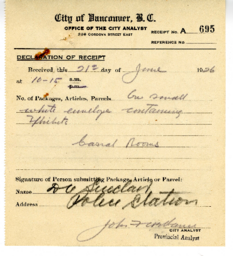 City of Vancouver, B.C.
OFFICE OF THE CITY ANALYST
236 CORDOVA STREET EAST
RECEIPT NO. A 695
REFERENCE NO.
DECLARATION OF RECEIPT
Received this 21st day of June 1926
at 10-15 a.m.
No. of Packages, Articles, Parcels. One small
white envelope containing
Exhibits
Canal Rooms
Signature of Person submitting Package, Article or Parcel:
Name Det Sinclair
Address Police Station
John F.
CITY ANALYST
Provincial Analyst